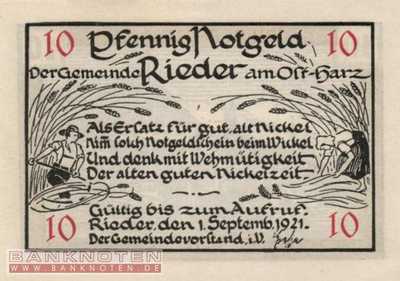 10 Pfennig Notgeld 10
Der Gemeinde Rieder am Ost-Harz
Als Ersatz für gut, alt Nickel
Nim̄ solch Notgeldschein beim Wickel
Und denk mit Wehmütigkeit
Der alten guten Nickelzeit.
Gültig bis zum Aufruf.
10 Rieder, den 1. Septemb. 1921. 10
Der Gemeindevorstand, i.V.
BANKNOTEN
WWW.BANKNOTEN.DE